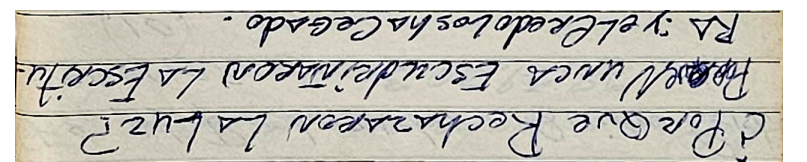 ¿PORQUE RECHAZARON LA LUZ?
NUNCA ESCUDRIÑARON LA ESCRITU-
RA: y eL CRedo LOS hA CeGADO.